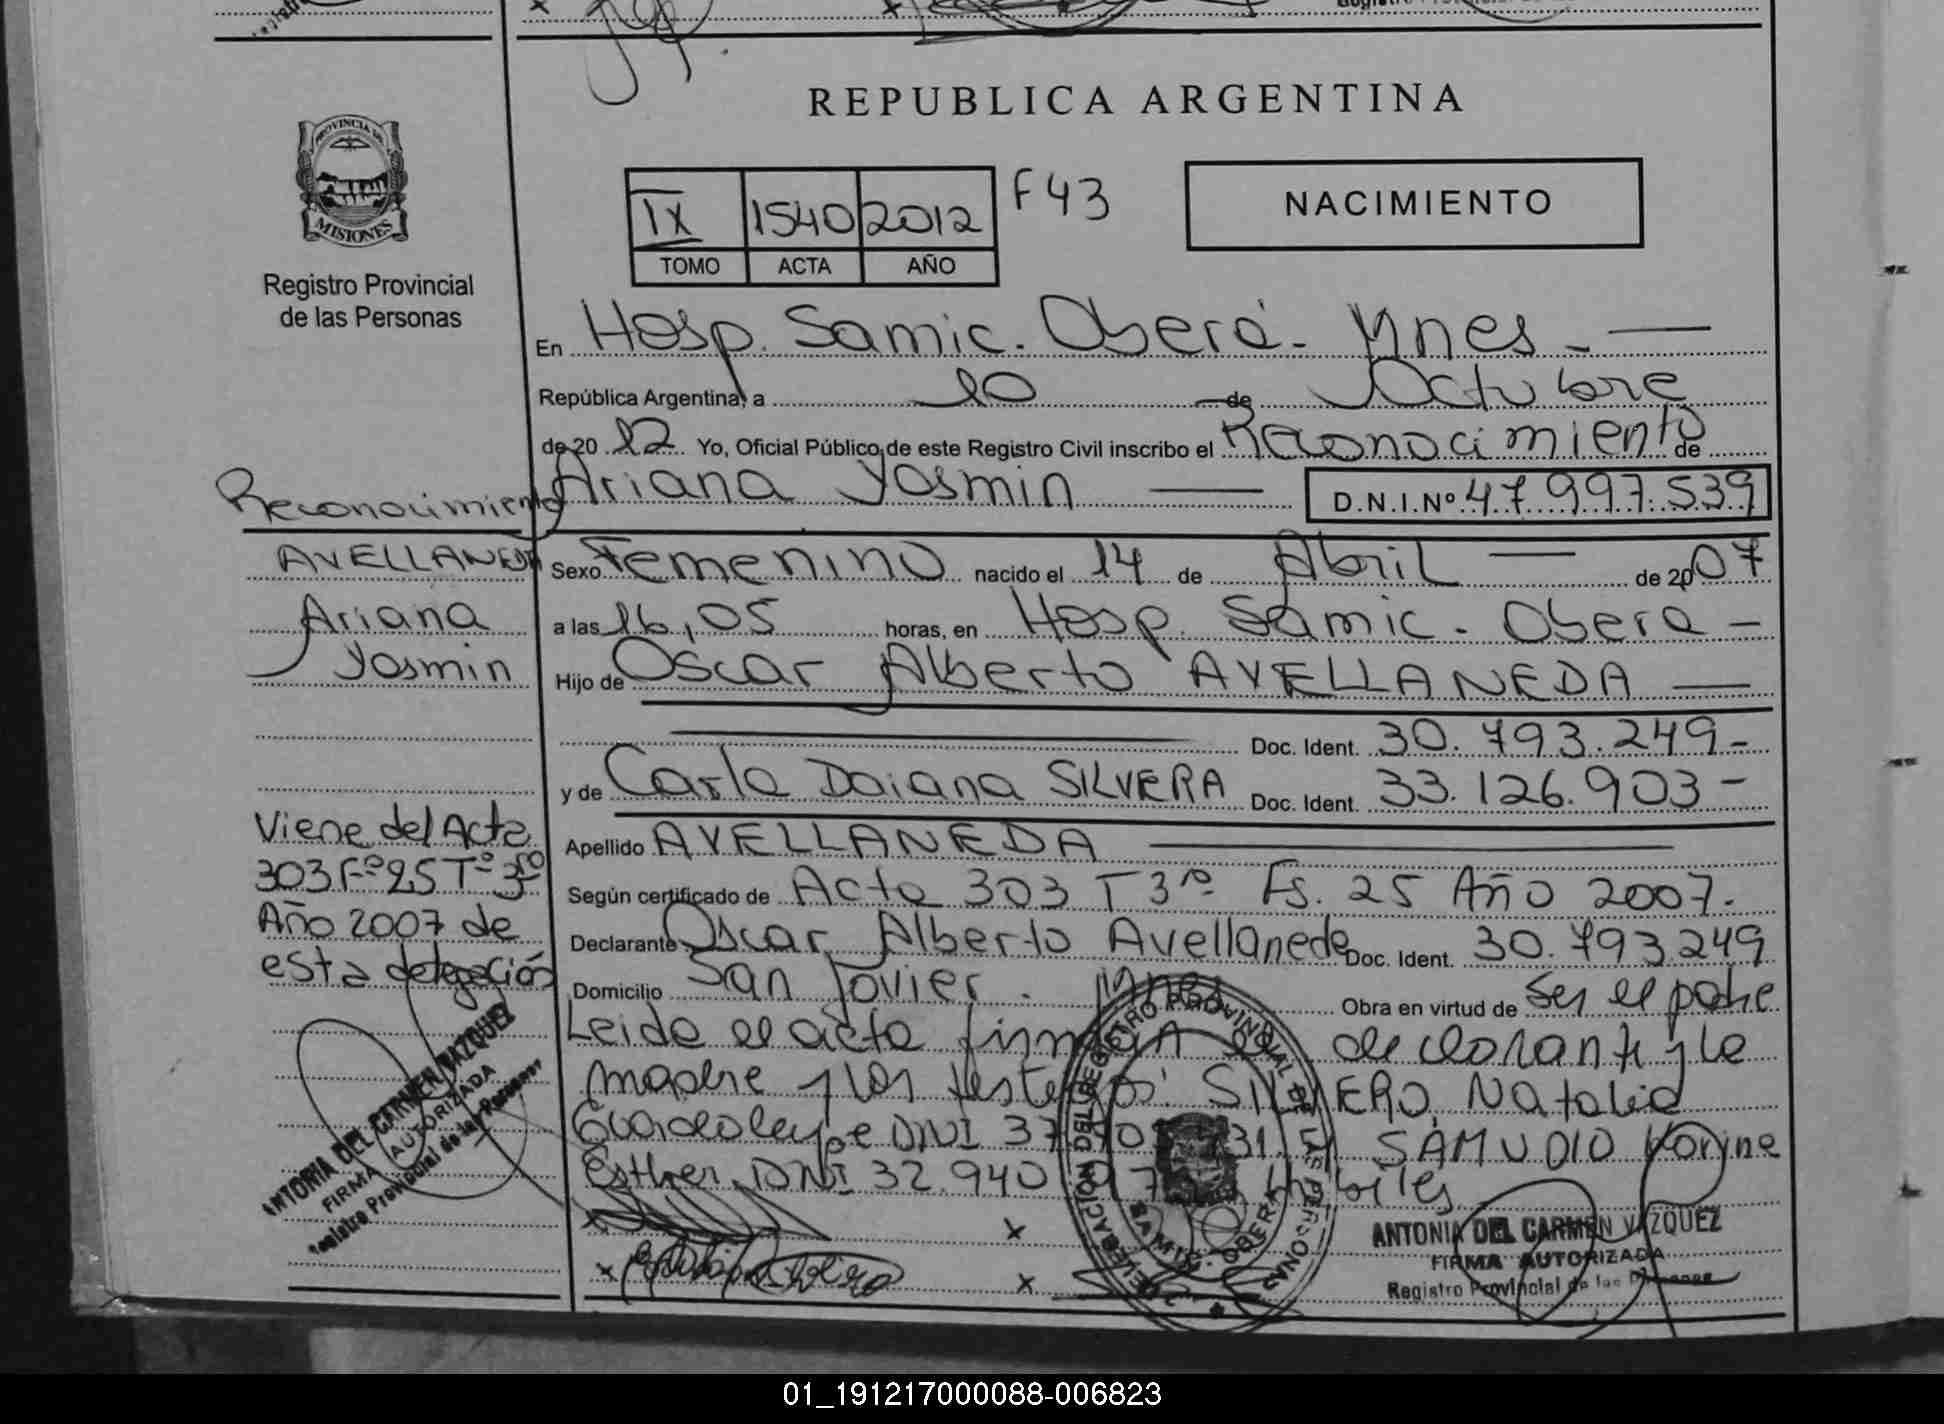 REPUBLICA ARGENTINA
PROVINCIA DE
MISIONES
Registro Provincial
de las Personas
IX 1540 2012 F43
TOMO ACTA AÑO
NACIMIENTO
En Hosp. Samic. Oberá - Mnes -
República Argentina, a 10 de Octubre
de 20 12 Yo, Oficial Público de este Registro Civil inscribo el Reconocimiento de
Ariana Yasmin D.N.I.Nº 47.997.539
Reconocimiento
AVELLANEDA
Ariana
Yasmin
Sexo Femenino nacido el 14 de Abril de 2007
a las 16,05 horas, en Hosp. Samic. Obera -
Hijo de Oscar Alberto AVELLANEDA
Doc. Ident. 30.793.249-
y de Carla Daiana SILVERA Doc. Ident. 33.126.903-
Apellido AVELLANEDA
Según certificado de Acta 303 T 3ro Fs. 25 Año 2007.
Declarante Oscar Alberto Avellaneda Doc. Ident. 30.793.249
Domicilio San Javier. Mnes Obra en virtud de Ser el padre
Leida el acta firman el declarante y la
madre y los testigos: SILVERO Natalia
Guadalupe DNI 37 31 y SAMUDIO Karine
Esther DNI 32.940 97 habiles
Viene del Acta
303 Fº 25 Tº 3ro
Año 2007 de
esta delegación
ANTONIA DEL CARMEN VAZQUEZ
FIRMA AUTORIZADA
Registro Provincial de las Personas
DELEGACION DEL REGISTRO PROVINCIAL DE LAS PERSONAS
SAMIC - OBERA
ANTONIA DEL CARMEN VAZQUEZ
FIRMA AUTORIZADA
Registro Provincial de las Personas
01_191217000088-006823